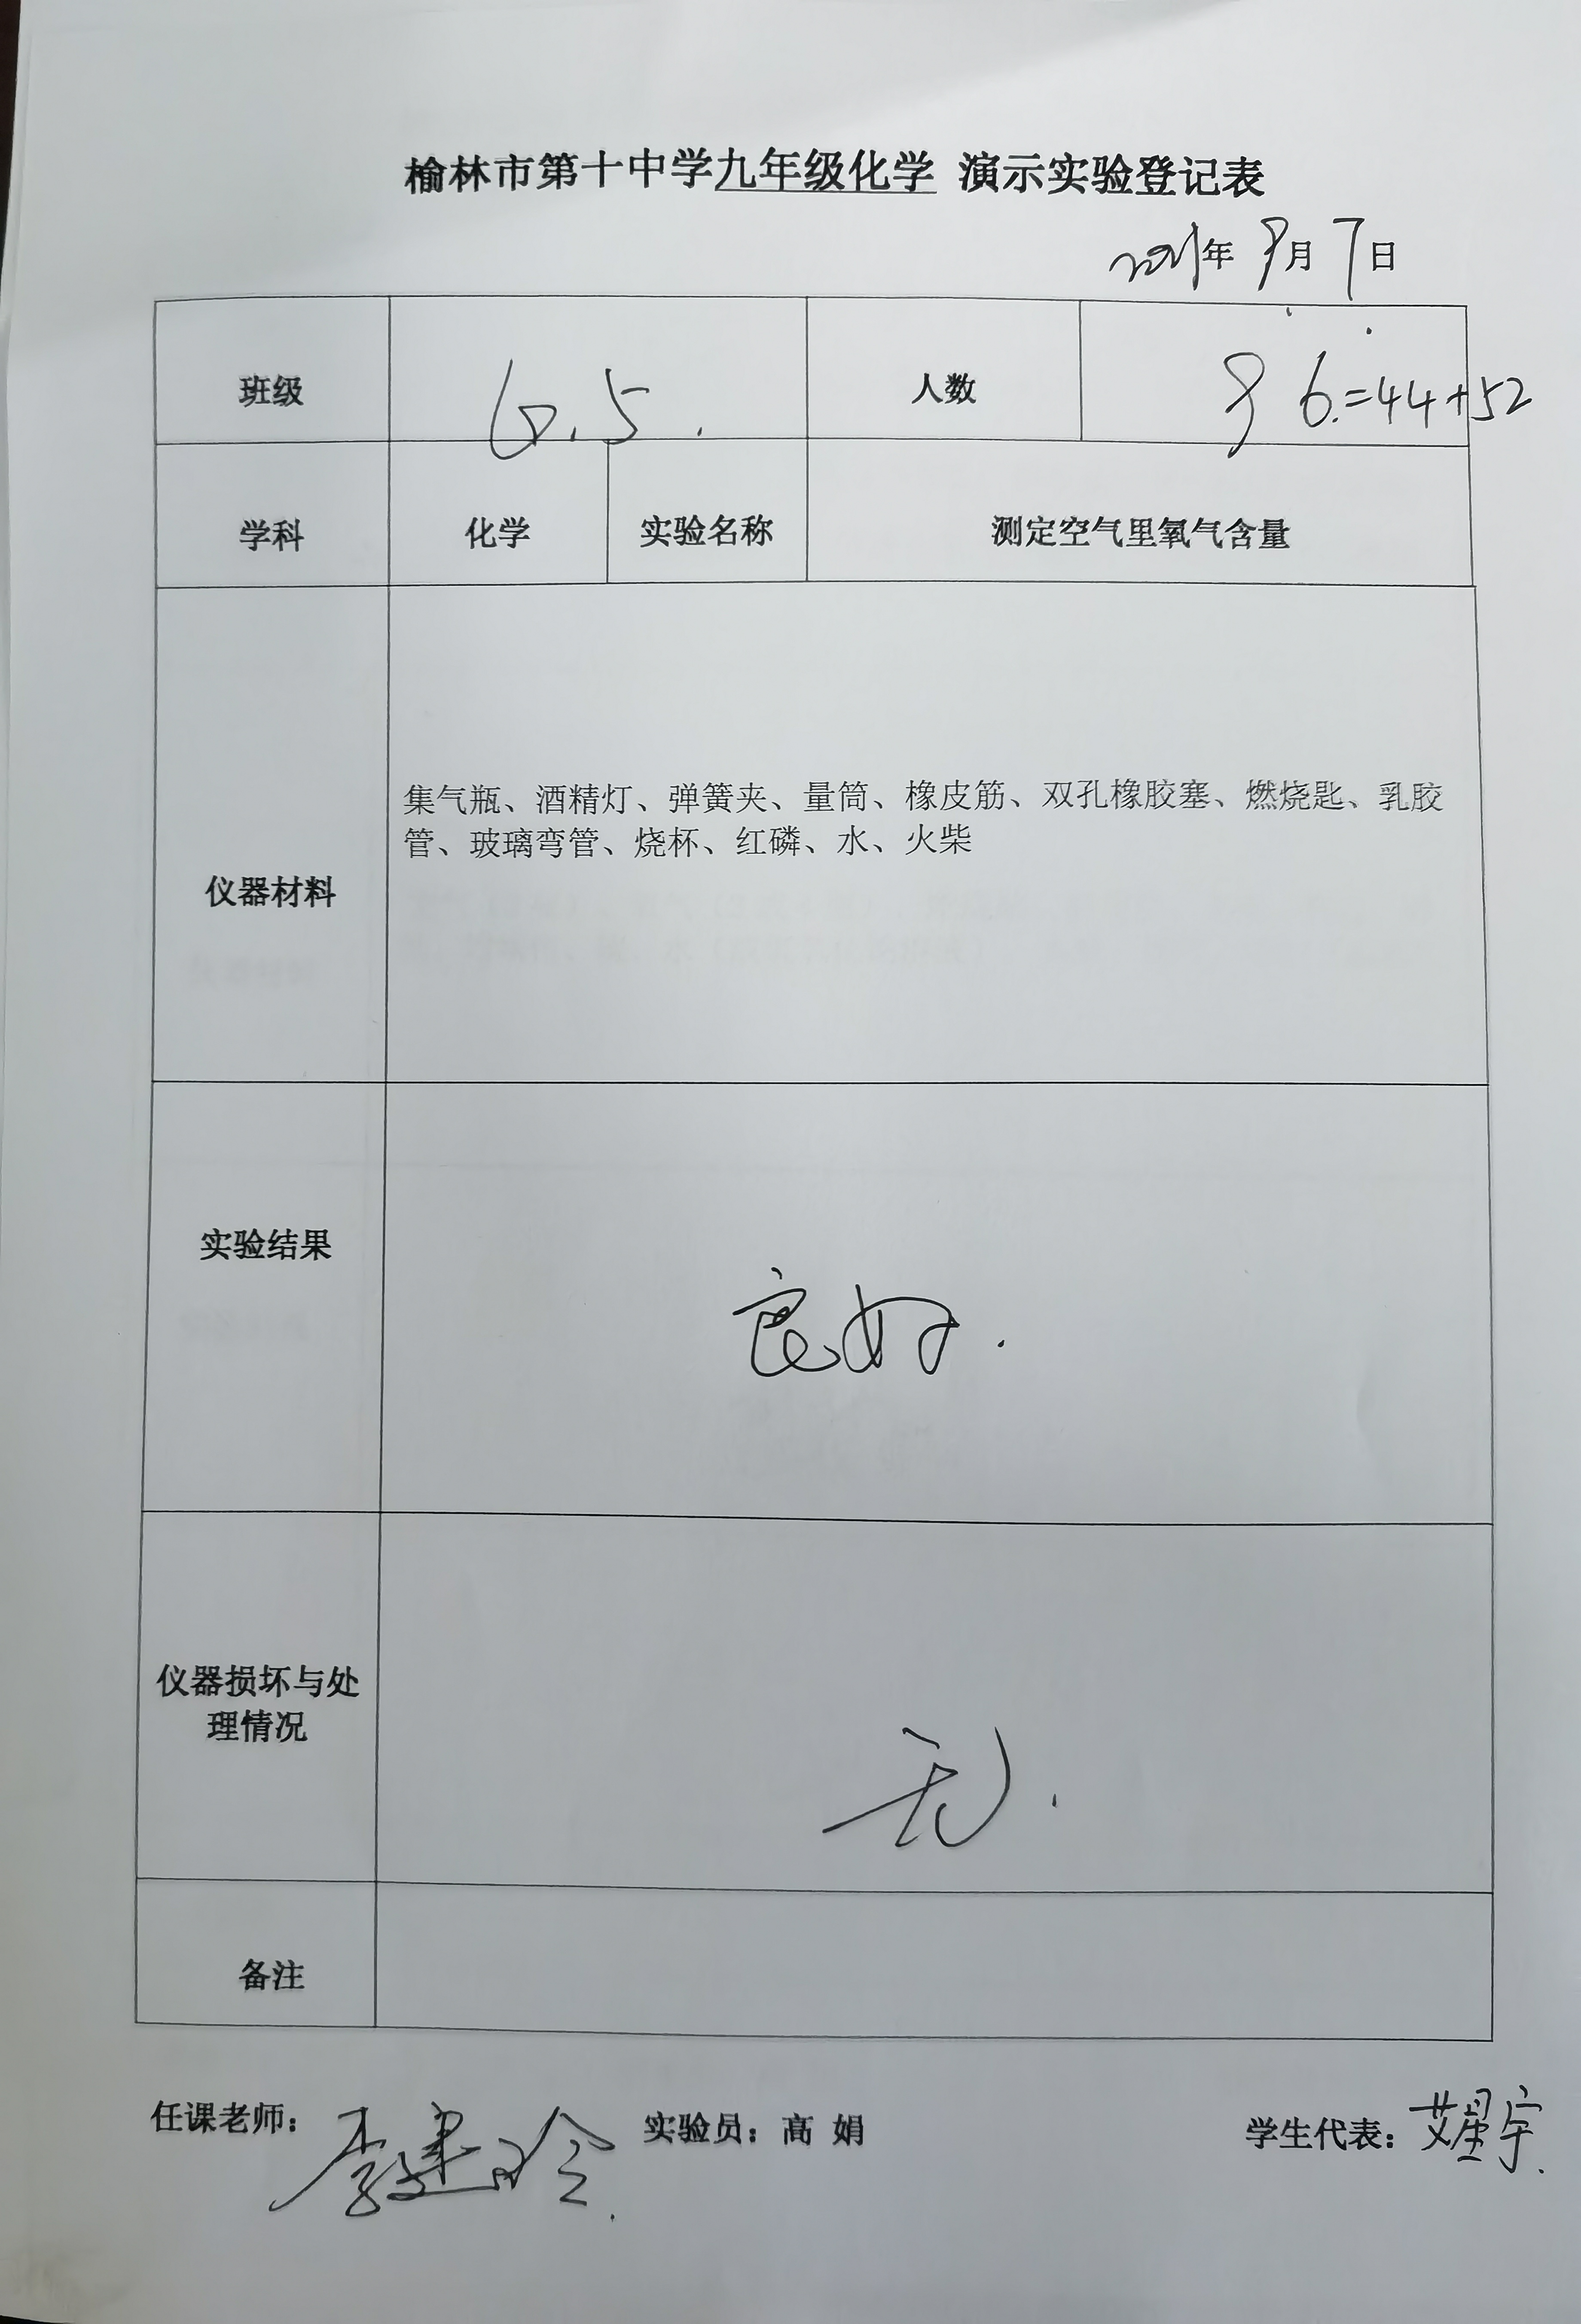 榆林市第十中学九年级化学 演示实验登记表
2021年 9月 7日
班级 6.5. 人数 96.=44+52
学科 化学 实验名称 测定空气里氧气含量
仪器材料
集气瓶、酒精灯、弹簧夹、量筒、橡皮筋、双孔橡胶塞、燃烧匙、乳胶
管、玻璃弯管、烧杯、红磷、水、火柴
实验结果 良好.
仪器损坏与处
理情况
无.
备注
任课老师: 李建玲. 实验员: 高 娟 学生代表: 艾星宇.